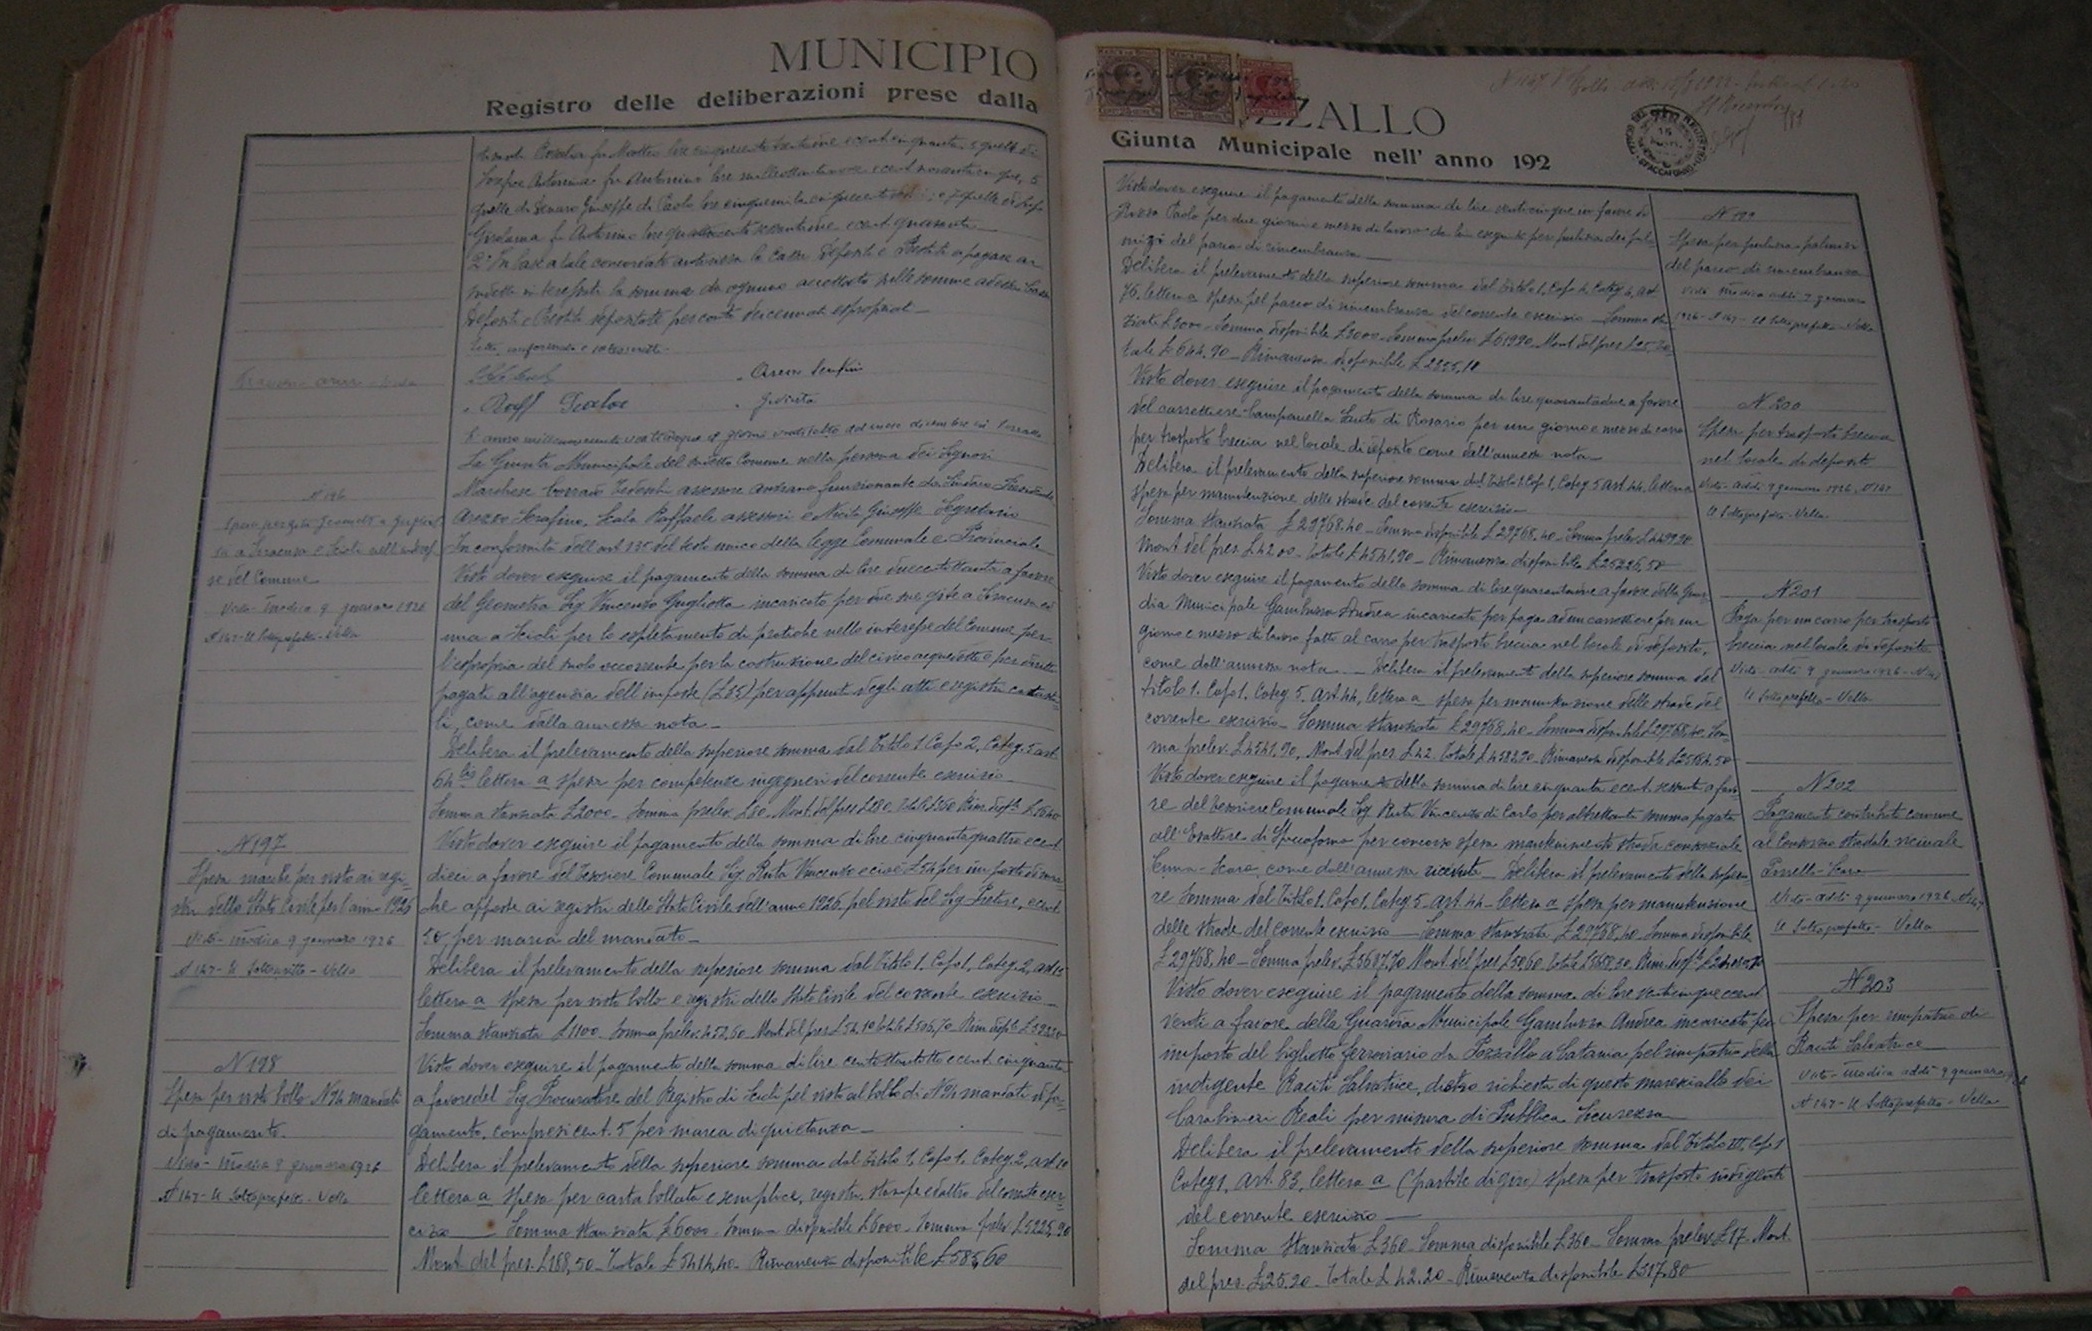 MUNICIPIO
Registro delle deliberazioni prese dalla
quelle di Denaro Giuseppe di Paolo lire cinquemila cinquecento
Girolama fu Antonino lire quattrocento sessantuno e cent. quaranta
2° In base a tale concordato autorizza la Cassa Depositi e Prestiti a pagare ai
suddetti interessati la somma da ognuno accettata sulle somme
Depositi e Prestiti depositate per conto
Letto, confermato e sottoscritto
Arezzo Serafino
Raff Scala
G. Nicita
L'anno millenovecento venticinque il giorno ventisette del mese dicembre in Pozzallo
La Giunta Municipale del suddetto Comune nella persona dei Signori
Marchese Corrado Tedeschi assessore anziano funzionante da Sindaco Presidente
Arezzo Serafino, Scala Raffaele assessori e Nicita Giuseppe Segretario
In conformità dell'art 135 del testo unico della legge Comunale e Provinciale
N 196
a Siracusa e Scicli nell'interes
se del Comune
Visto - Modica 9 gennaio 1926
N 147 - Il Sottoprefetto - Vella
Visto dover eseguire il pagamento della somma di lire duecentottanta a favore
del Geometra Sig. Vincenzo Gugliotta incaricato per due sue gite a Siracusa ed
una a Scicli per lo espletamento di pratiche nello interesse del Comune per
l'esproprio del suolo occorrente per la costruzione del civico acquedotto e per diritti
pagati all'agenzia dell'imposte (L 85) per appunti degli atti e registri catasta-
li, come dalla annessa nota -
Delibera il prelevamento della superiore somma dal Titolo 1. Capo 2, Categ. 5 art
64 bis lettera a spesa per competenze ingegneri del corrente esercizio -
Somma stanziata £2000 - Somma prelev. £80 - Mont. del pres £280
N 197
Spesa marche per visto ai regi-
stri dello Stato Civile per l'anno 1926
Visto - Modica 9 gennaio 1926
N 147 - Il Sottoprefetto - Vella
Visto dover eseguire il pagamento della somma di lire cinquantaquattro e cent
dieci a favore del Tesoriere Comunale Sig. Ruta Vincenzo e cioè £ 54 per importo di mar-
che apposte ai registri dello Stato Civile dell'anno 1926 pel visto del Sig. Pretore, e cent
10 per marca del mandato -
Delibera il prelevamento della superiore somma dal Titolo 1, Capo 1, Categ. 2, art 10
lettera a spesa per visto bollo e registri dello Stato Civile del corrente esercizio -
Somma stanziata £ 1100 - Somma prelev. £ 452,60 - Mont. del pres £ 54,10 totale £ 506,70
N 198
Spesa per visto bollo N 94 mandati
di pagamento.
Visto - Modica 9 gennaio 1926
N 147 - Il Sottoprefetto - Vella
Visto dover eseguire il pagamento della somma di lire centottantotto e cent. cinquanta
a favore del Sig. Procuratore del Registro di Scicli pel visto al bollo di N 94 mandati di pa-
gamento, compresi cent. 5 per marca di quietanza -
Delibera il prelevamento della superiore somma dal Titolo 1, Capo 1. Categ. 2, art 10
lettera a spesa per carta bollata e semplice, registri, stampe ed altro del corrente eser-
cizio - Somma stanziata £ 6000 - Somma disponibile £ 6000 - Somma prelev. £ 5225,90
Mont. del pres. £ 188,50 - Totale £ 5414,40 - Rimanenza disponibile £ 585,60
ZZALLO
Giunta Municipale nell' anno 192
Visto dover eseguire il pagamento della somma di lire venticinque in favore di
Paolo per due giorni e mezzo di lavoro da lui eseguiti per pulizia dei pal-
mizi del parco di rimembranza -
Delibera il prelevamento della superiore somma dal Titolo 1, Capo 4, Categ. 4, art
76, lettera a spesa pel parco di rimembranza del corrente esercizio - Somma stan-
ziata £ 3000 - Somma disponibile £ 3000 - Somma prelev. £ 619,90 - Mont. del pres £ 25,00
tale £ 644,90 - Rimanenza disponibile £ 2355,10
N 199
Spesa per pulizia palmizi
del parco di rimembranza
Visto Modica addì 9 gennaio
1926 - N 147 - Il Sottoprefetto - Vella
Visto dover eseguire il pagamento della somma di lire quarantadue a favore
del carrettiere Campanella Santo di Rosario per un giorno e mezzo di carro
per trasporto breccia nel locale di deposito come dall'annessa nota -
Delibera il prelevamento della superiore somma dal Titolo 1 Capo 1, Categ 5 art. 44, lettera a
spesa per manutenzione delle strade del corrente esercizio -
Somma stanziata £ 29768,40 - Somma disponibile £ 29768,40 - Somma prelev. £ 4499,90
Mont. del pres. £ 42,00 - totale £ 4541,90 - Rimanenza disponibile £ 25226,50
N 200
Spesa per trasporto breccia
nel locale di deposito
Visto - addì 9 gennaio 1926 - N 147
Il Sottoprefetto - Vella
Visto dover eseguire il pagamento della somma di lire quarantadue a favore della Guar-
dia Municipale Gambuzza Andrea incaricato per paga ad un carrettiere per un
giorno e mezzo di lavoro fatto al carro per trasporto breccia nel locale di deposito,
come dall'annessa nota - Delibera il prelevamento della superiore somma dal
titolo 1, Capo 1, Categ 5, art 44, lettera a spesa per manutenzione delle strade del
corrente esercizio - Somma stanziata £ 29768,40 - Somma disponibile £ 29768,40 - Som-
ma prelev. £ 4541,90, Mont. del pres. £ 42 - Totale £ 4583,90 - Rimanenza disponibile £ 25184,50
N 201
Paga per un carro per trasporto
breccia nel locale di deposito
Visto - addì 9 gennaio 1926 - N 147
Il Sottoprefetto - Vella
Visto dover eseguire il pagamento della somma di lire cinquanta e cent. sessanta a favo-
re del Tesoriere Comunale Sig. Ruta Vincenzo di Carlo per altrettanta somma pagata
all'Esattore di Spaccaforno per concorso spesa mantenimento strada consorziale
come dall'annessa ricevuta - Delibera il prelevamento della superio-
re somma dal Titolo 1, Capo 1, Categ 5 - art. 44 - lettera a spesa per manutenzione
delle strade del corrente esercizio - Somma stanziata £ 29768,40 Somma disponibile
£ 29768,40 - Somma prelev. £ 5607,70 Mont. del pres £ 50,60
N 202
Pagamento contributo comune
al Consorzio stradale vicinale
Visto - addì 9 gennaio 1926 - N 147
Il Sottoprefetto - Vella
Visto dover eseguire il pagamento della somma di lire venticinque e cent
venti a favore della Guardia Municipale Gambuzza Andrea incaricato per
importo del biglietto ferroviario da Pozzallo a Catania pel rimpatrio della
indigente Raciti Salvatrice, dietro richiesta di questo maresciallo dei
Carabinieri Reali per misura di Pubblica Sicurezza -
Delibera il prelevamento della superiore somma dal Titolo III, Capo 1
Categ 1, art. 83, lettera a (partite di giro) spesa per trasporto indigenti
del corrente esercizio -
Somma stanziata £ 360 - Somma disponibile £ 360 - Somma prelev. £ 17 - Mont.
del pres. £ 25,20 - Totale £ 42,20 - Rimanenza disponibile £ 317,80
N 203
Spesa per rimpatrio di
Raciti Salvatrice
Visto - Modica addì 9 gennaio 1926
N 147 - Il Sottoprefetto - Vella